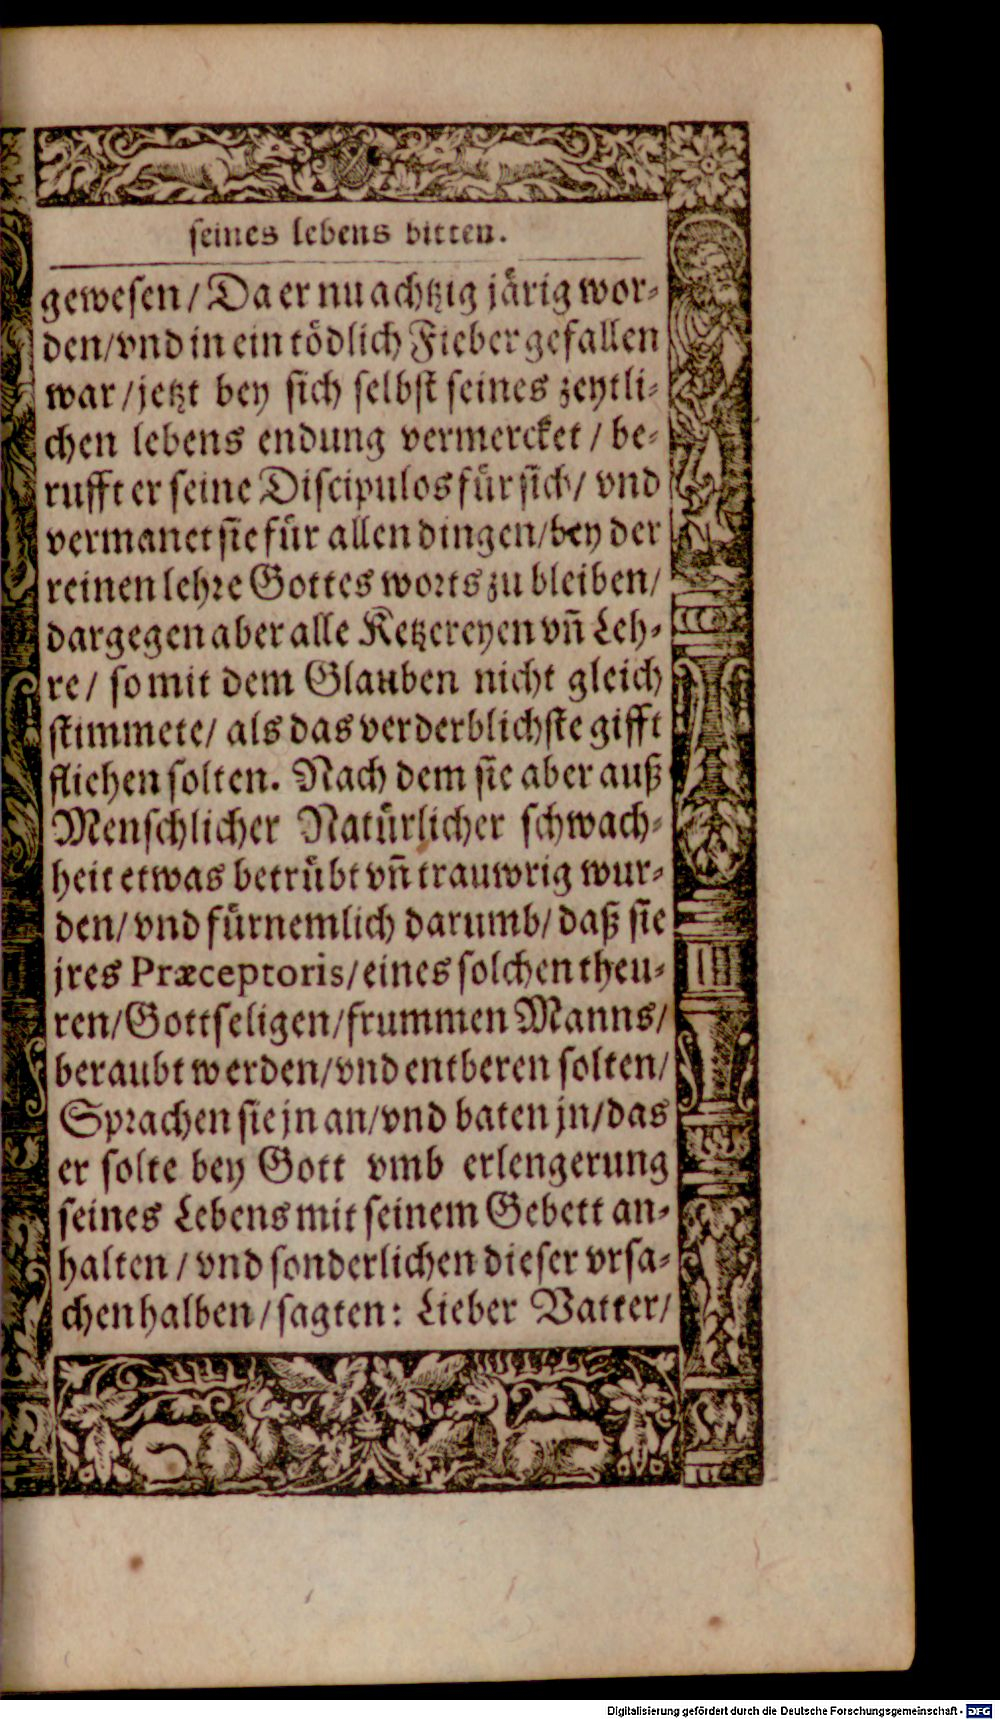 seines lebens bitten.
gewesen / Da er nu achtzig jårig wor⸗
den/vnd in ein tödlich Fieber gefallen
war / jetzt bey sich selbst seines zeytli⸗
chen lebens endung vermercket / be⸗
rufft er seine Discipulos für sich / vnd
vermanet sie für allen dingen/bey der
reinen lehre Gottes worts zu bleiben/
dargegen aber alle Ketzereyen vñ Leh⸗
re / so mit dem Glauben nicht gleich
stimmete / als das verderblichste gifft
fliehen solten. Nach dem sie aber auß
Menschlicher Natürlicher schwach⸗
heit etwas betrübt vñ trauwrig wur⸗
den / vnd fürnemlich darumb / daß sie
jres Præceptoris/eines solchen theu⸗
ren/Gottseligen/frummen Manns/
beraubt werden/vnd entberen solten/
Sprachen sie jn an/vnd baten jn/das
er solte bey Gott vmb erlengerung
seines Lebens mit seinem Gebett an⸗
halten / vnd sonderlichen dieser vrsa⸗
chen halben / sagten: Lieber Vatter/
Digitalisierung gefördert durch die Deutsche Forschungsgemeinschaft - DFG